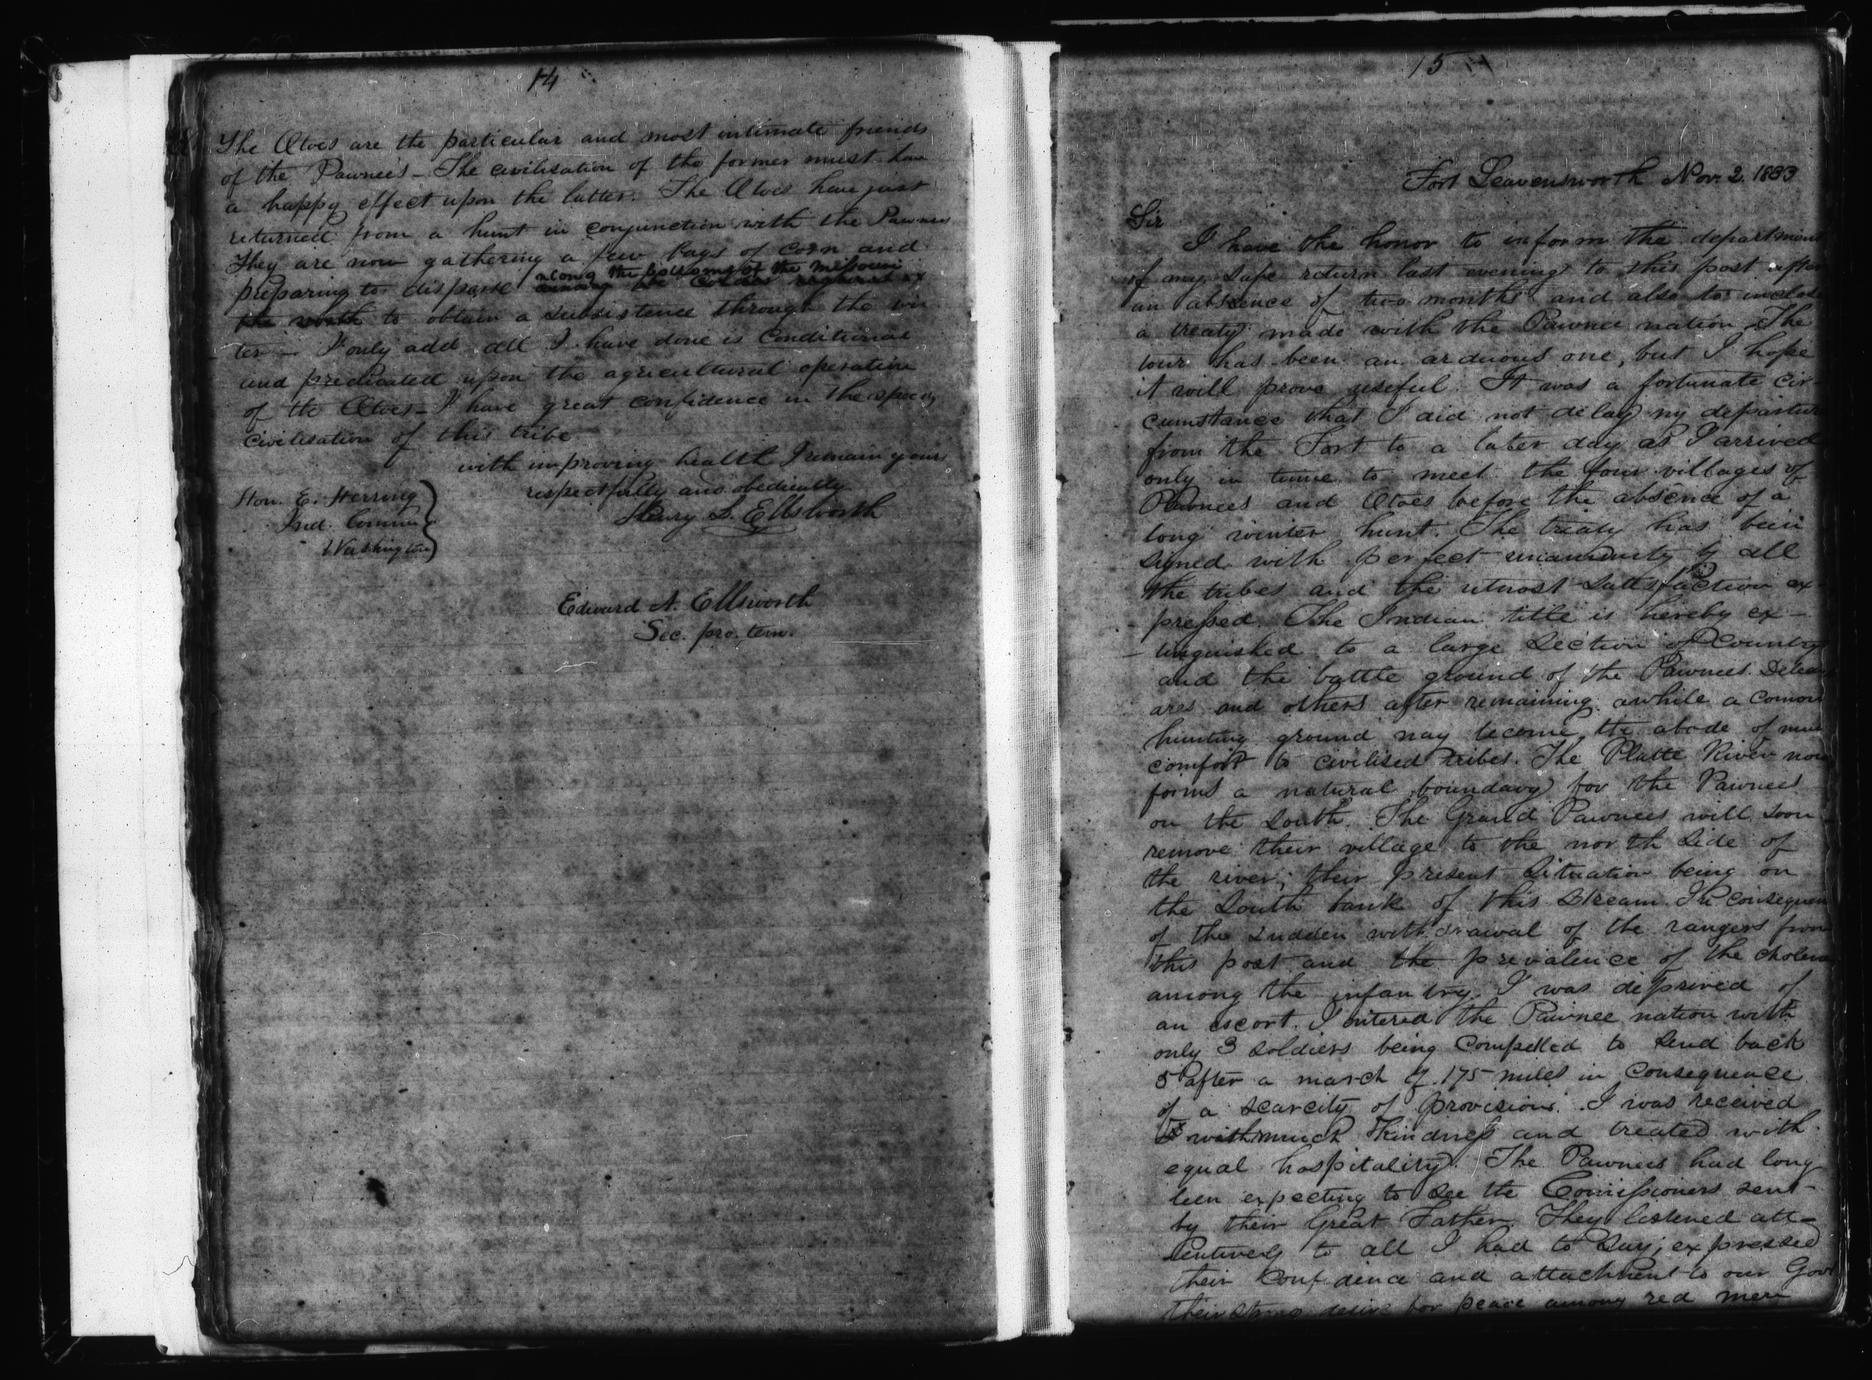 14
The Otoes are the particular and most intimate friends
of the Pawnee's - The civilisation of the former must have
a happy effect upon the latter. The Otoes have just
returned from a hunt in conjunction with the Pawnees
They are now gathering a few bags of corn and
preparing to disperse along the bottoms of the Missouri
the north to obtain a subsistence through the win
ter - I only add all I have done is conditional
and predicated upon the agricultural operation
of the Otoes - I have great confidence in the speedy
civilisation of this tribe
with improving health I remain yours
respectfully and obediently
Henry L. Ellsworth
Hon. E. Herring
Ind. Commr
Washington
Edward A. Ellsworth
Sec. pro. tem.
15
Fort Leavensworth Nov. 2. 1833
Sir
I have the honor to inform the department
of my safe return last evening to this post after
an absence of two months and also to inclose
a treaty made with the Pawnee nation The
tour has been an arduous one, but I hope
it will prove useful. It was a fortunate cir-
cumstance that I did not delay my departure
from the Fort to a later day as I arrived
only in time to meet the four villages of
Pawnees and Otoes before the absence of a
long winter hunt. The treaty has been
signed with perfect unanimity by all
the tribes and the utmost satisfaction ex-
pressed. The Indian title is hereby ex-
tinguished to a large section of Country
and the battle ground of the Pawnees Delaw
ares and others after remaining awhile a comon
hunting ground may become the abode of much
comfort to civilised tribes. The Platte River now
forms a natural boundary for the Pawnees
on the South. The Grand Pawnees will soon
remove their village to the north side of
the river; their present situation being on
the South bank of this stream. In consequence
of the sudden withdrawal of the rangers from
this post and the prevalence of the cholera
among the infantry I was deprived of
an escort. I entered the Pawnee nation with
only 3 soldiers being compelled to send back
5 after a march of 175 miles in consequence
of a scarcity of provisions. I was received
with much kindness and treated with
equal hospitality. The Pawnees had long
been expecting to see the Comissioners sent
by their Great Father. They listened att-
entively to all I had to say; expressed
their confidence and attachment to our Govt
their strong desire for peace among red men